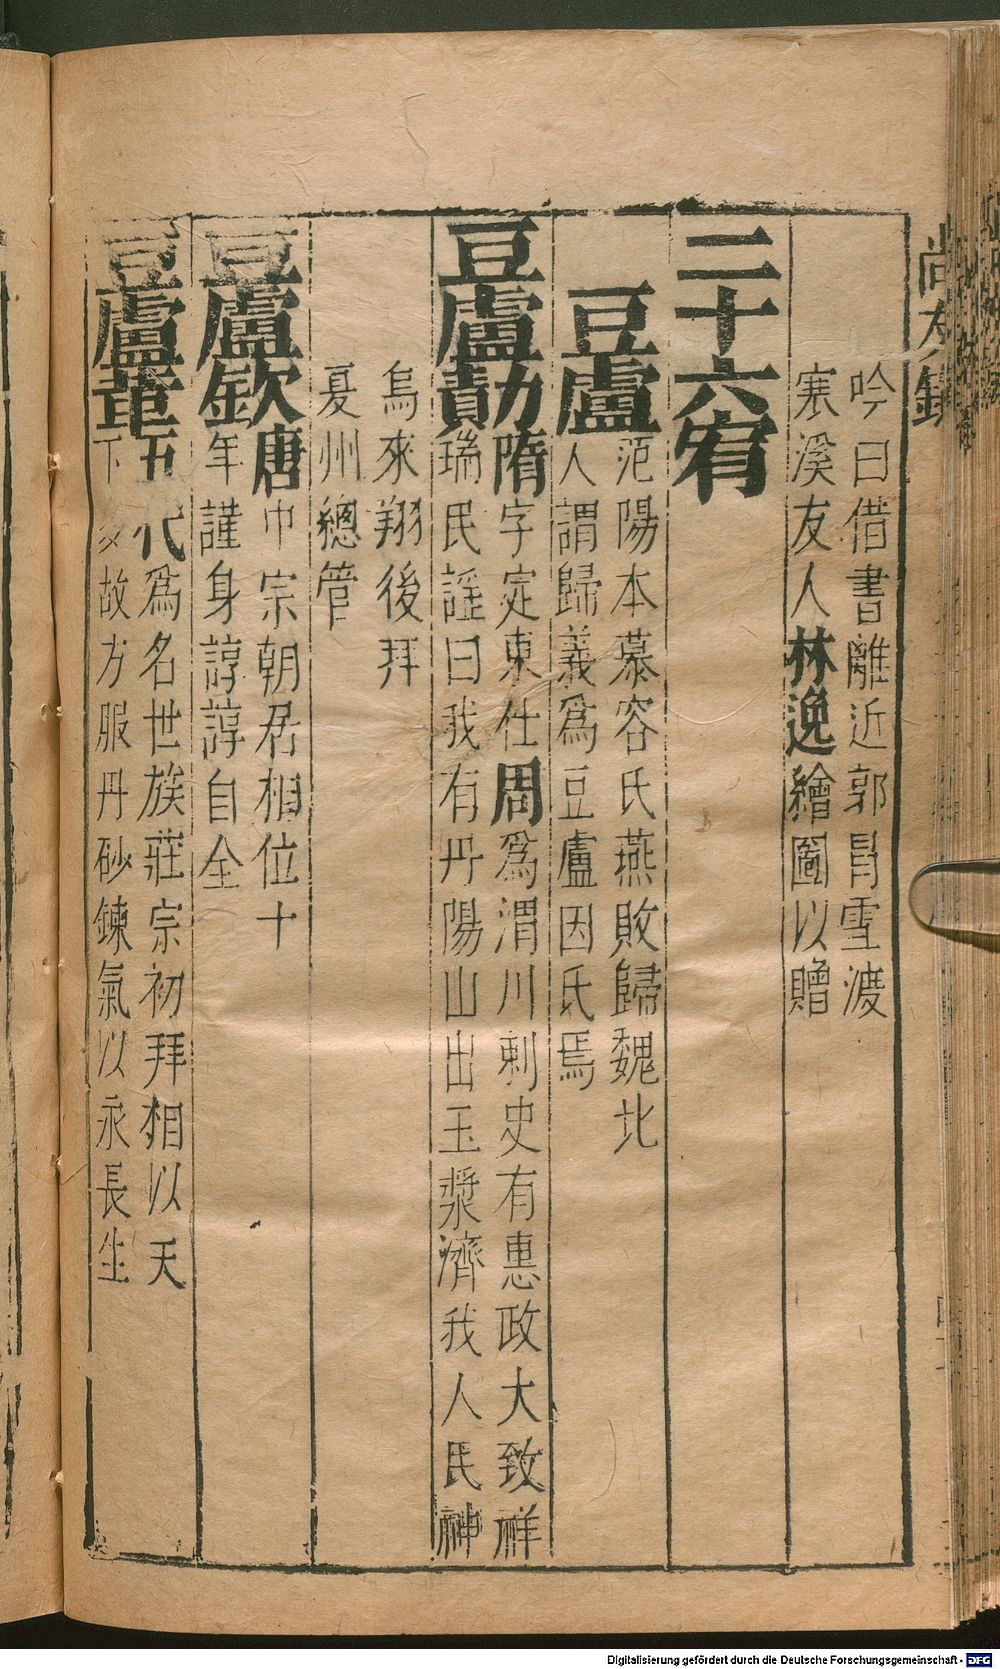 尚友錄
吟曰借書離近郭冐雪渡
寒溪友人林逸繪圖以贈
二十六宥
豆盧
范陽本慕容氏燕敗歸魏北
人謂歸義爲豆盧因氏焉
豆盧勣
隋字定東仕周爲渭川刺史有惠政大致祥
瑞民謡曰我有丹陽山出玉漿濟我人民神
烏來翔後拜
夏州總管
豆盧欽
唐中宗朝居相位十
年謹身諄諄自全
豆盧革
五代爲名世族莊宗初拜相以天
下多故方服丹砂鍊氣以求長生
Digitalisierung gefördert durch die Deutsche Forschungsgemeinschaft - DFG